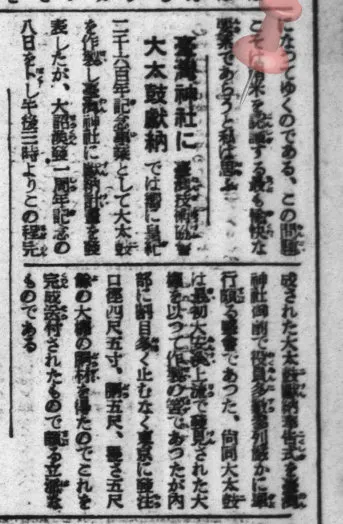 になつてゆくのである。この問題
こそは南米を認識する最も愉快な
要素であらうと私は思ふ
臺灣神社に
大太鼓獻納
臺灣技術協會
では曩に皇紀
二千六百年記念事業として大太鼓
を作製し臺灣神社に獻納計畫を發
表したが、大詔渙發一周年記念の
八日をトし午後三時よりこの程完
成された大太鼓獻納奉告式を臺灣
神社御前で役員多數參列嚴かに擧
行頗る盛會であつた、尙同大太鼓
は最初大安溪上流で發見された大
を以つて作製の筈であつたが內
部に割目多く止むなく東京に發注
口徑四尺五寸、胴五尺、長さ五尺
の大欅の胴材を得たのでこれを
完成添付されたもので頗る立派な
ものである